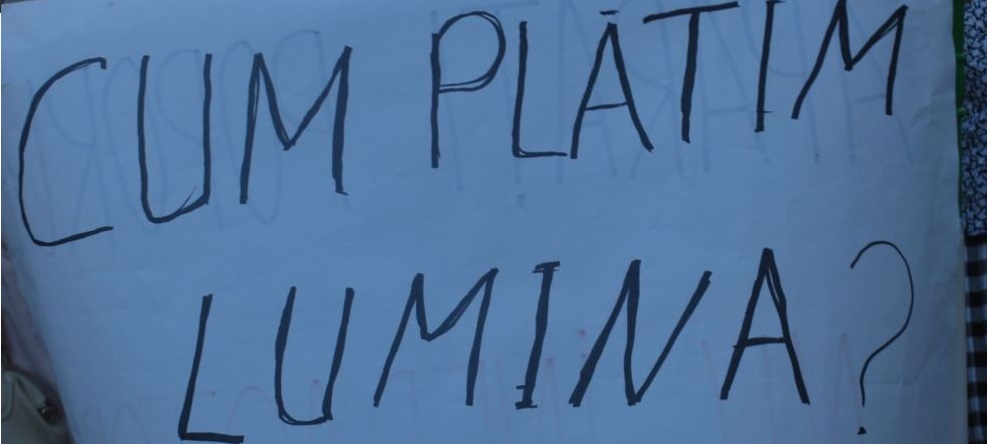 CUM PLĂTIM
LUMINA?